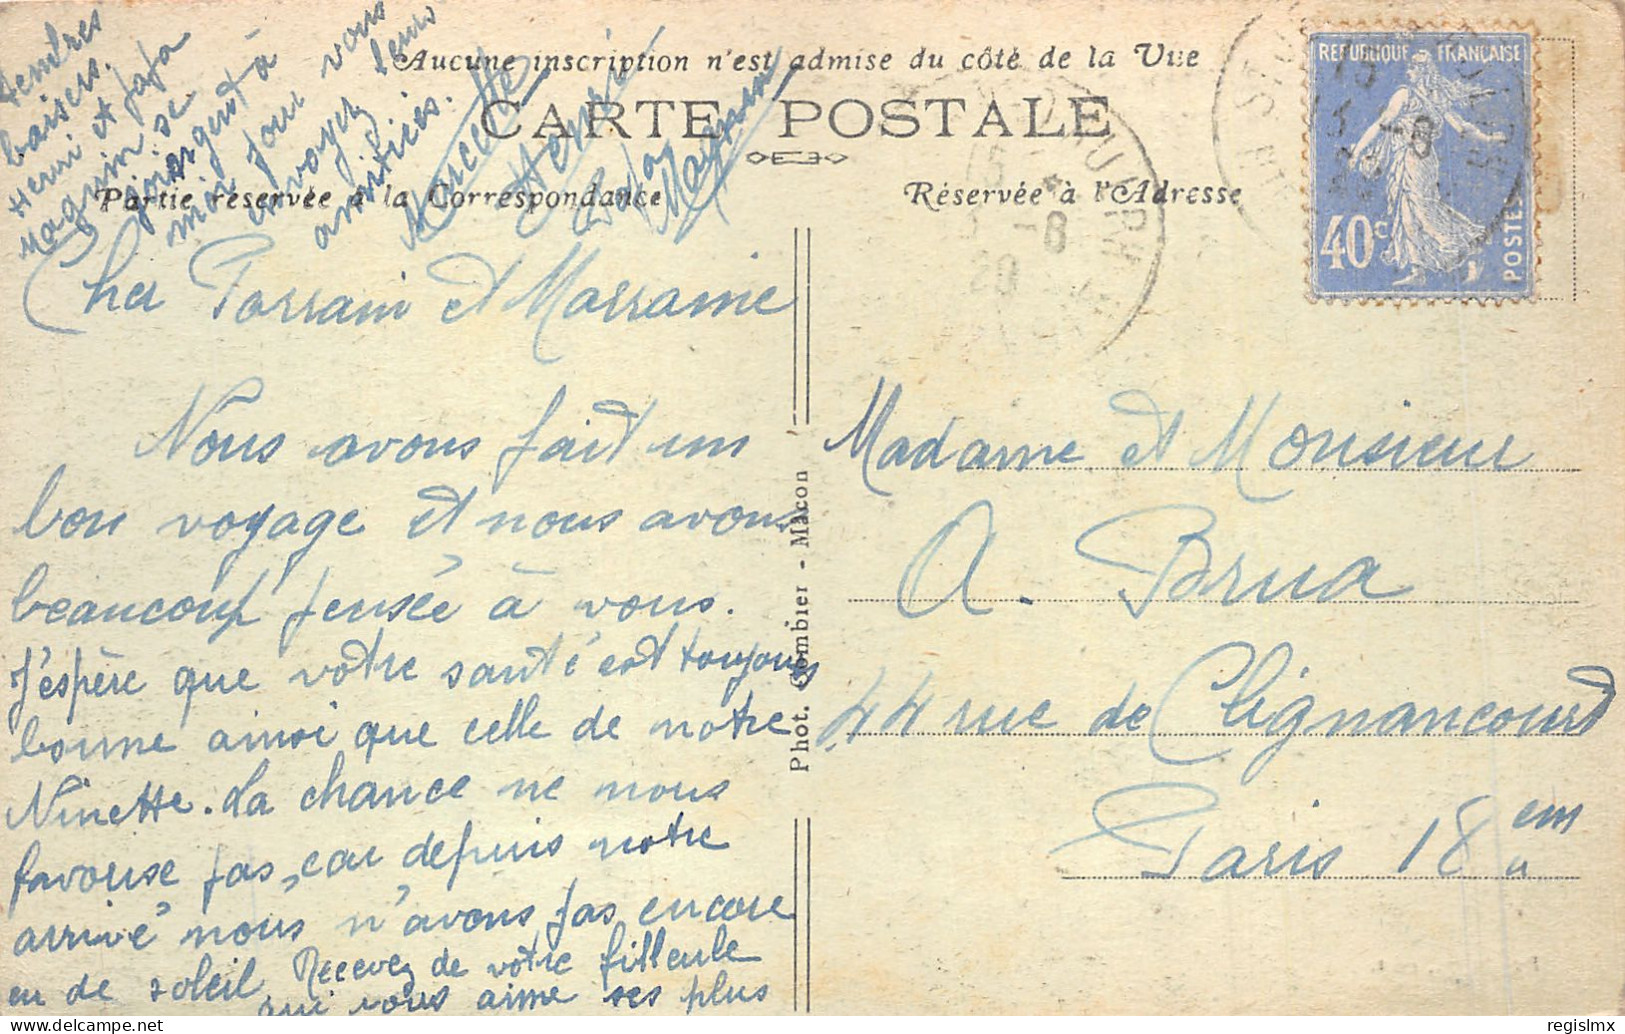 Aucune inscription n'est admise du côté de la Vue
CARTE POSTALE
Partie réservée à la Correspondance
Réservée à l'Adresse
REPUBLIQUE FRANÇAISE
40c
POSTES
Cher Parrain et Marraine
Nous avons fait un
bon voyage et nous avons
beaucoup pensée à vous.
J'espère que votre santé est toujours
bonne ainsi que celle de notre
Ninette. La chance ne nous
favorise pas, car depuis notre
arrivé nous n'avons pas encore
eu de soleil Recevez de votre filleule
qui vous aime ses plus
tendres
baisers.
Henri et Papa
Magnin se
joigent à
moi pour vous
envoyez leurs
amitiés.
Marcelle
Henri
Papa
Magnin
Phot. Combier - Macon
Madame et Monsieur
A. Brua
44 rue de Clignancourt
Paris 18em
regislmx
www.delcampe.net